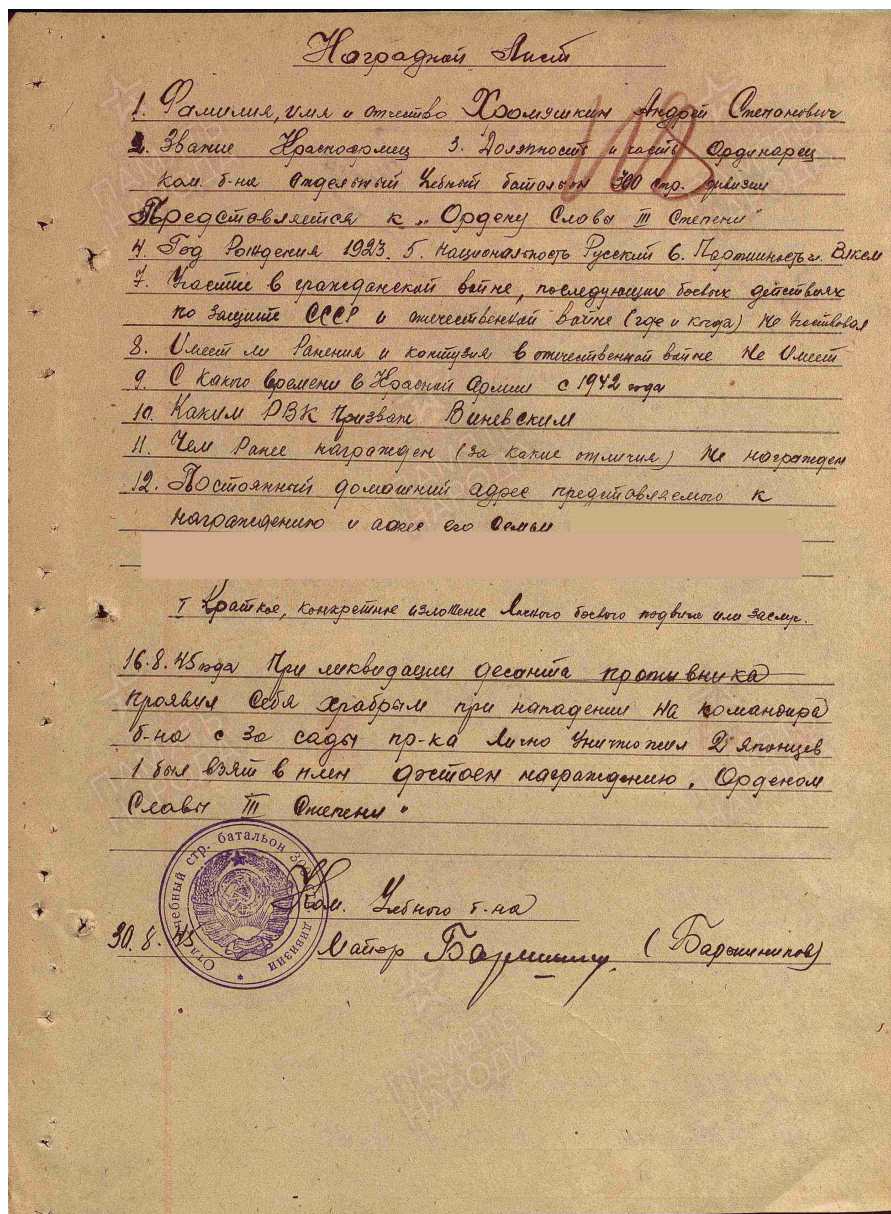 Наградной Лист
1. Фамилия, имя и отчество Хромушкин Андрей Степанович
2. Звание Красноармеец 3. Должность и часть Ординарец
ком. б-на Отдельный Учебный батальон 300 стр. дивизии
Представляется к „Ордену Славы III Степени"
4. Год Рождения 1923. 5. Национальность Русский 6. Партийность чл. Влксм
7. Участие в гражданской войне, последующих боевых действиях
по защите СССР и отечественной войне (где и когда) Не Участвовал
8. Имеет ли Ранения и контузия в отечественной войне Не Имеет
9. С какого времени в Красной Армии с 1942 года
10. Каким РВК Призван
11. Чем Ранее награжден (за какие отличия) Не награжден
12. Постоянный домашний адрес представляемого к
награждению и адрес его Семьи
I Краткое, конкретное изложение Личного боевого подвига или заслуг.
16.8.45 года При ликвидации десанта противника
проявил Себя храбрым при нападении на командира
б-на с за сады пр-ка Лично Уничтожил 2 Японцев
1 был взят в плен достоен награждению „Орденом
Славы III Степени"
Ком. Учебного б-на
30.8.45 Майор (Баринников)
учебный стр. батальон дивизии
ПАМЯТЬ НАРОДА